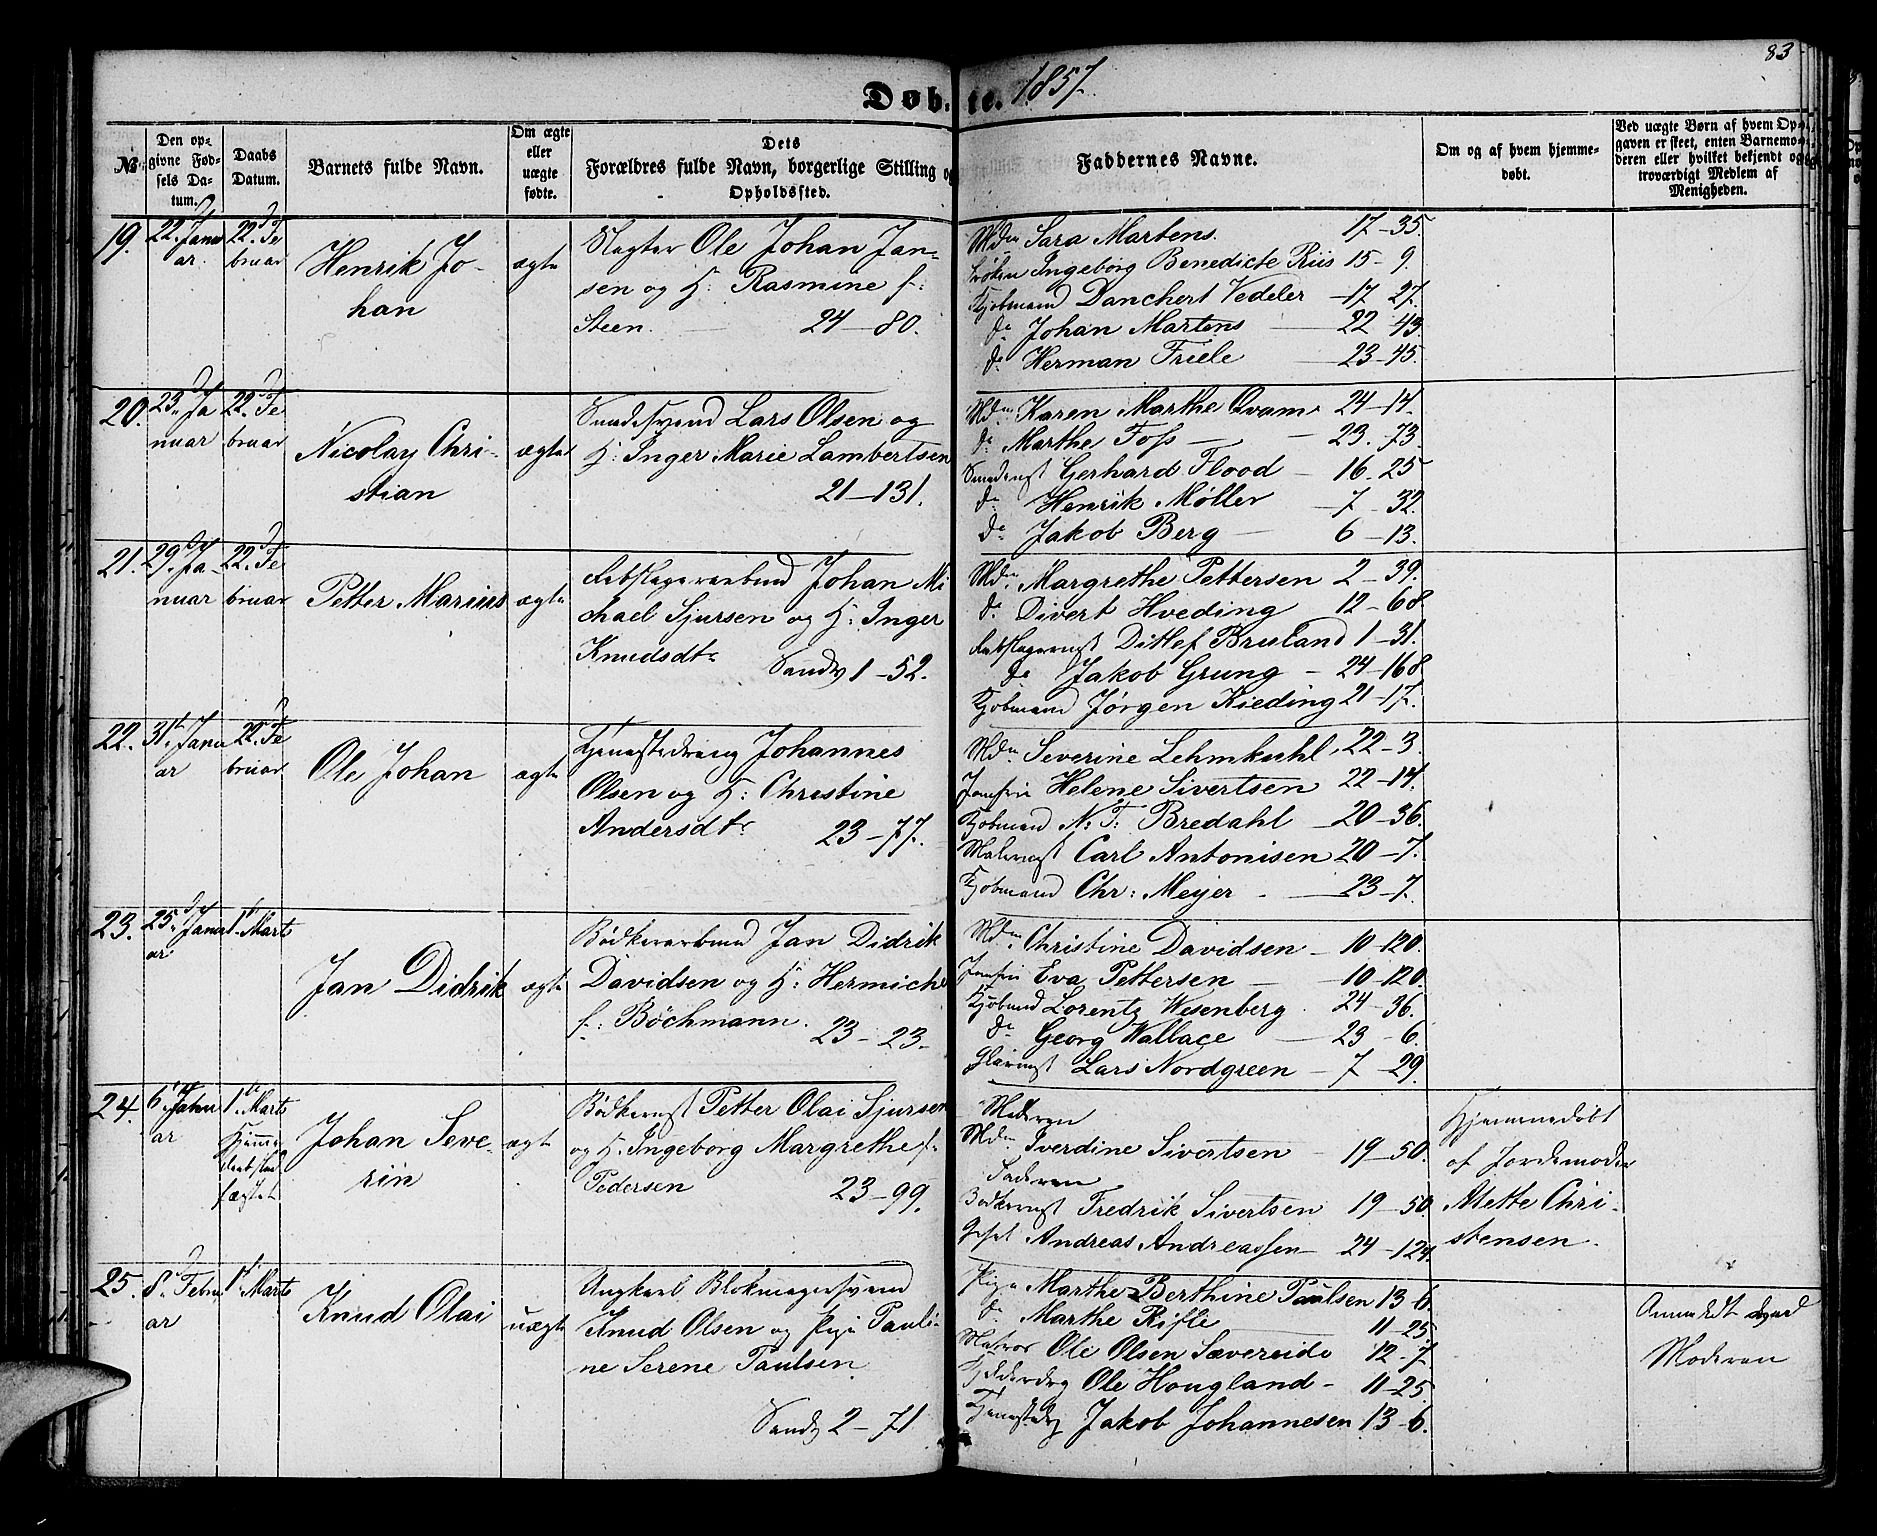 83
Døbte. 1857.
№
Den opgivne Fødsels Datum.
Daabs Datum.
Barnets fulde Navn.
Om ægte eller uægte fødte.
Dets Forældres fulde Navn, borgerlige Stilling og Opholdssted.
Faddernes Navne.
Om og af hvem hjemmedøbt.
Ved uægte Børn af hvem Opgaven er skeet, enten Barnemoderen eller hvilket bekjendt og troværdigt Medlem af Menigheden.
19.
22d Janu
ar.
22d Fe
bruar
Henrik Jo-
han
ægte
Slagter Ole Johan Jan-
sen og H: Rasmine f:
Steen. 24-80.
Mdm Sara Martens. 17-35.
Frøken Ingeborg Benedicte Riis 15-9.
Kjøbmand Danchert Vedeler 17-27.
do Johan Martens 22-43
do Herman Friele 23-45.
20.
23d Ja
nuar
22d Fe
bruar
Nicolay Chri-
stian
ægte
Smedesvend Lars Olsen og
H: Inger Marie Lambertsen
21-131.
Mdm Karen Marthe Qvam 24-14.
do Marthe Foss 23.73.
Smedmst Gerhard Flood 16.25
do Henrik Møller 7-32.
do Jakob Berg 6-13.
21.
29d Ja-
nuar
22d Fe
bruar
Petter Marius
ægte
Rebslagerarbeid Johan Mi
chael Sjursen og H: Inger
Knudsdtr Sandv 1-52.
Mdm Margrethe Pettersen 2-39.
do Divert Hveding 12-68
Rebslagermst Ditlef Bruland 1-31.
do Jakob Grung 24-168
Kjøbmand Jørgen Kieding 21-17.
22.
31t Janu
ar
22d Fe
bruar
Ole Johan
ægte
Tjenestedreng Johannes
Olsen og H: Christine
Andersdtr 23-77.
Mdm Severine Lehmkuhl 22-3.
Jomfru Helene Sivertsen 22-14.
Kjøbmand N: T: Bredahl 20-36.
Malermst Carl Antonisen 20-7.
Kjøbmand Chr: Meyer 23-7.
23.
25d Janu
ar
1t Marts
Jan Didrik
ægte
Bødkerarbeid Jan Didrik
Davidsen og H: Hermiche
f: Böchmann. 23-23.
Mdm Christine Davidsen 10-120.
Jomfru Eva Pettersen 10-120.
Kjøbmd Lorentz Wesenberg 24-36.
do Georg Wallace 23-6.
Glarmst Lars Nordgreen 7-29.
24.
6t Janu
ar
1t Marts
Hjemme
daab stad
fæstet
Johan Seve-
rin
ægte
Bødkermst Petter Olai Sjursen
og H. Ingeborg Margrethe f:
Pedersen 23-99.
Moderen
Mdm Iverdine Sivertsen 19-50.
Faderen
Bødkermst Fredrik Sivertsen 19-50.
Andreas Andreassen 24-124.
Hjemmedøbt
af Jordemoder
Mette Chri-
stensen.
25.
8d Febru
ar
1t Marts
Knud Olai
uægte
Ungkarl Blokmagersvend
Knud Olsen og Pige Pauli-
ne Serene Paulsen
Sandv 2-71
Pige Marthe Berthine Paulsen 13-6.
do Marthe Rifle 11-25
Matros Ole Olsen Sævereide 12-7.
Ole Hougland 11-25
Tjenestedrg Jakob Johannesen 13-6.
Anmeldt af
Moderen